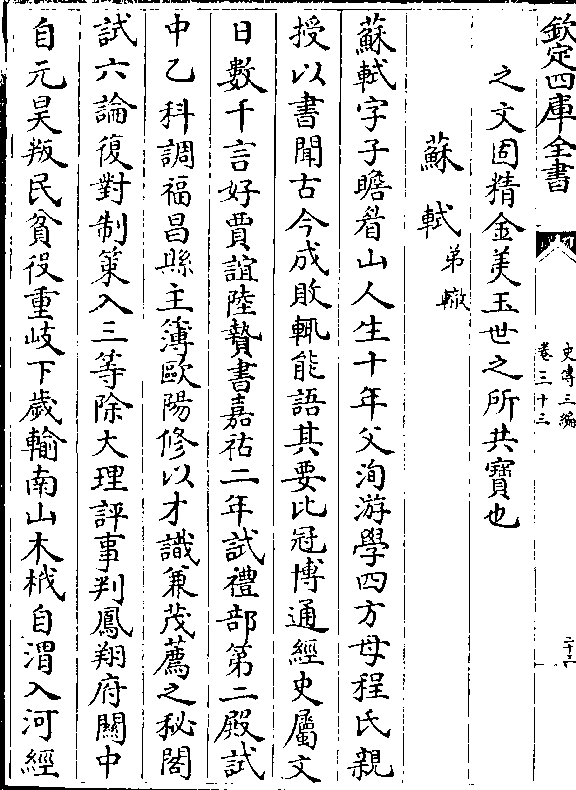 欽定四庫全書
史傳三編
卷三十三
二十二
之文固精金美玉世之所共寶也
蘇軾弟轍
蘇軾字子瞻眉山人生十年父洵游學四方母程氏親
授以書聞古今成敗輒能語其要比冠博通經史屬文
日數千言好賈誼陸贄書嘉祐二年試禮部第二殿試
中乙科調福昌縣主簿歐陽修以才識兼茂薦之秘閣
試六論復對制策入三等除大理評事判鳳翔府關中
自元昊叛民貧役重岐下歲輸南山木栰自渭入河經